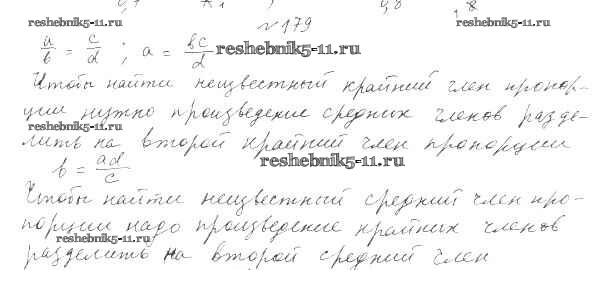 №179
a/b = c/d ; a = bc/d
Чтобы найти неизвестный крайний член пропор-
ции нужно произведение средних членов разде-
лить на второй крайний член пропорции
b = ad/c
Чтобы найти неизвестный средний член про-
порции надо произведение крайних членов
разделить на второй средний член
reshebnik5-11.ru
reshebnik5-11.ru
reshebnik5-11.ru
reshebnik5-11.ru
reshebnik5-11.ru
reshebnik5-11.ru